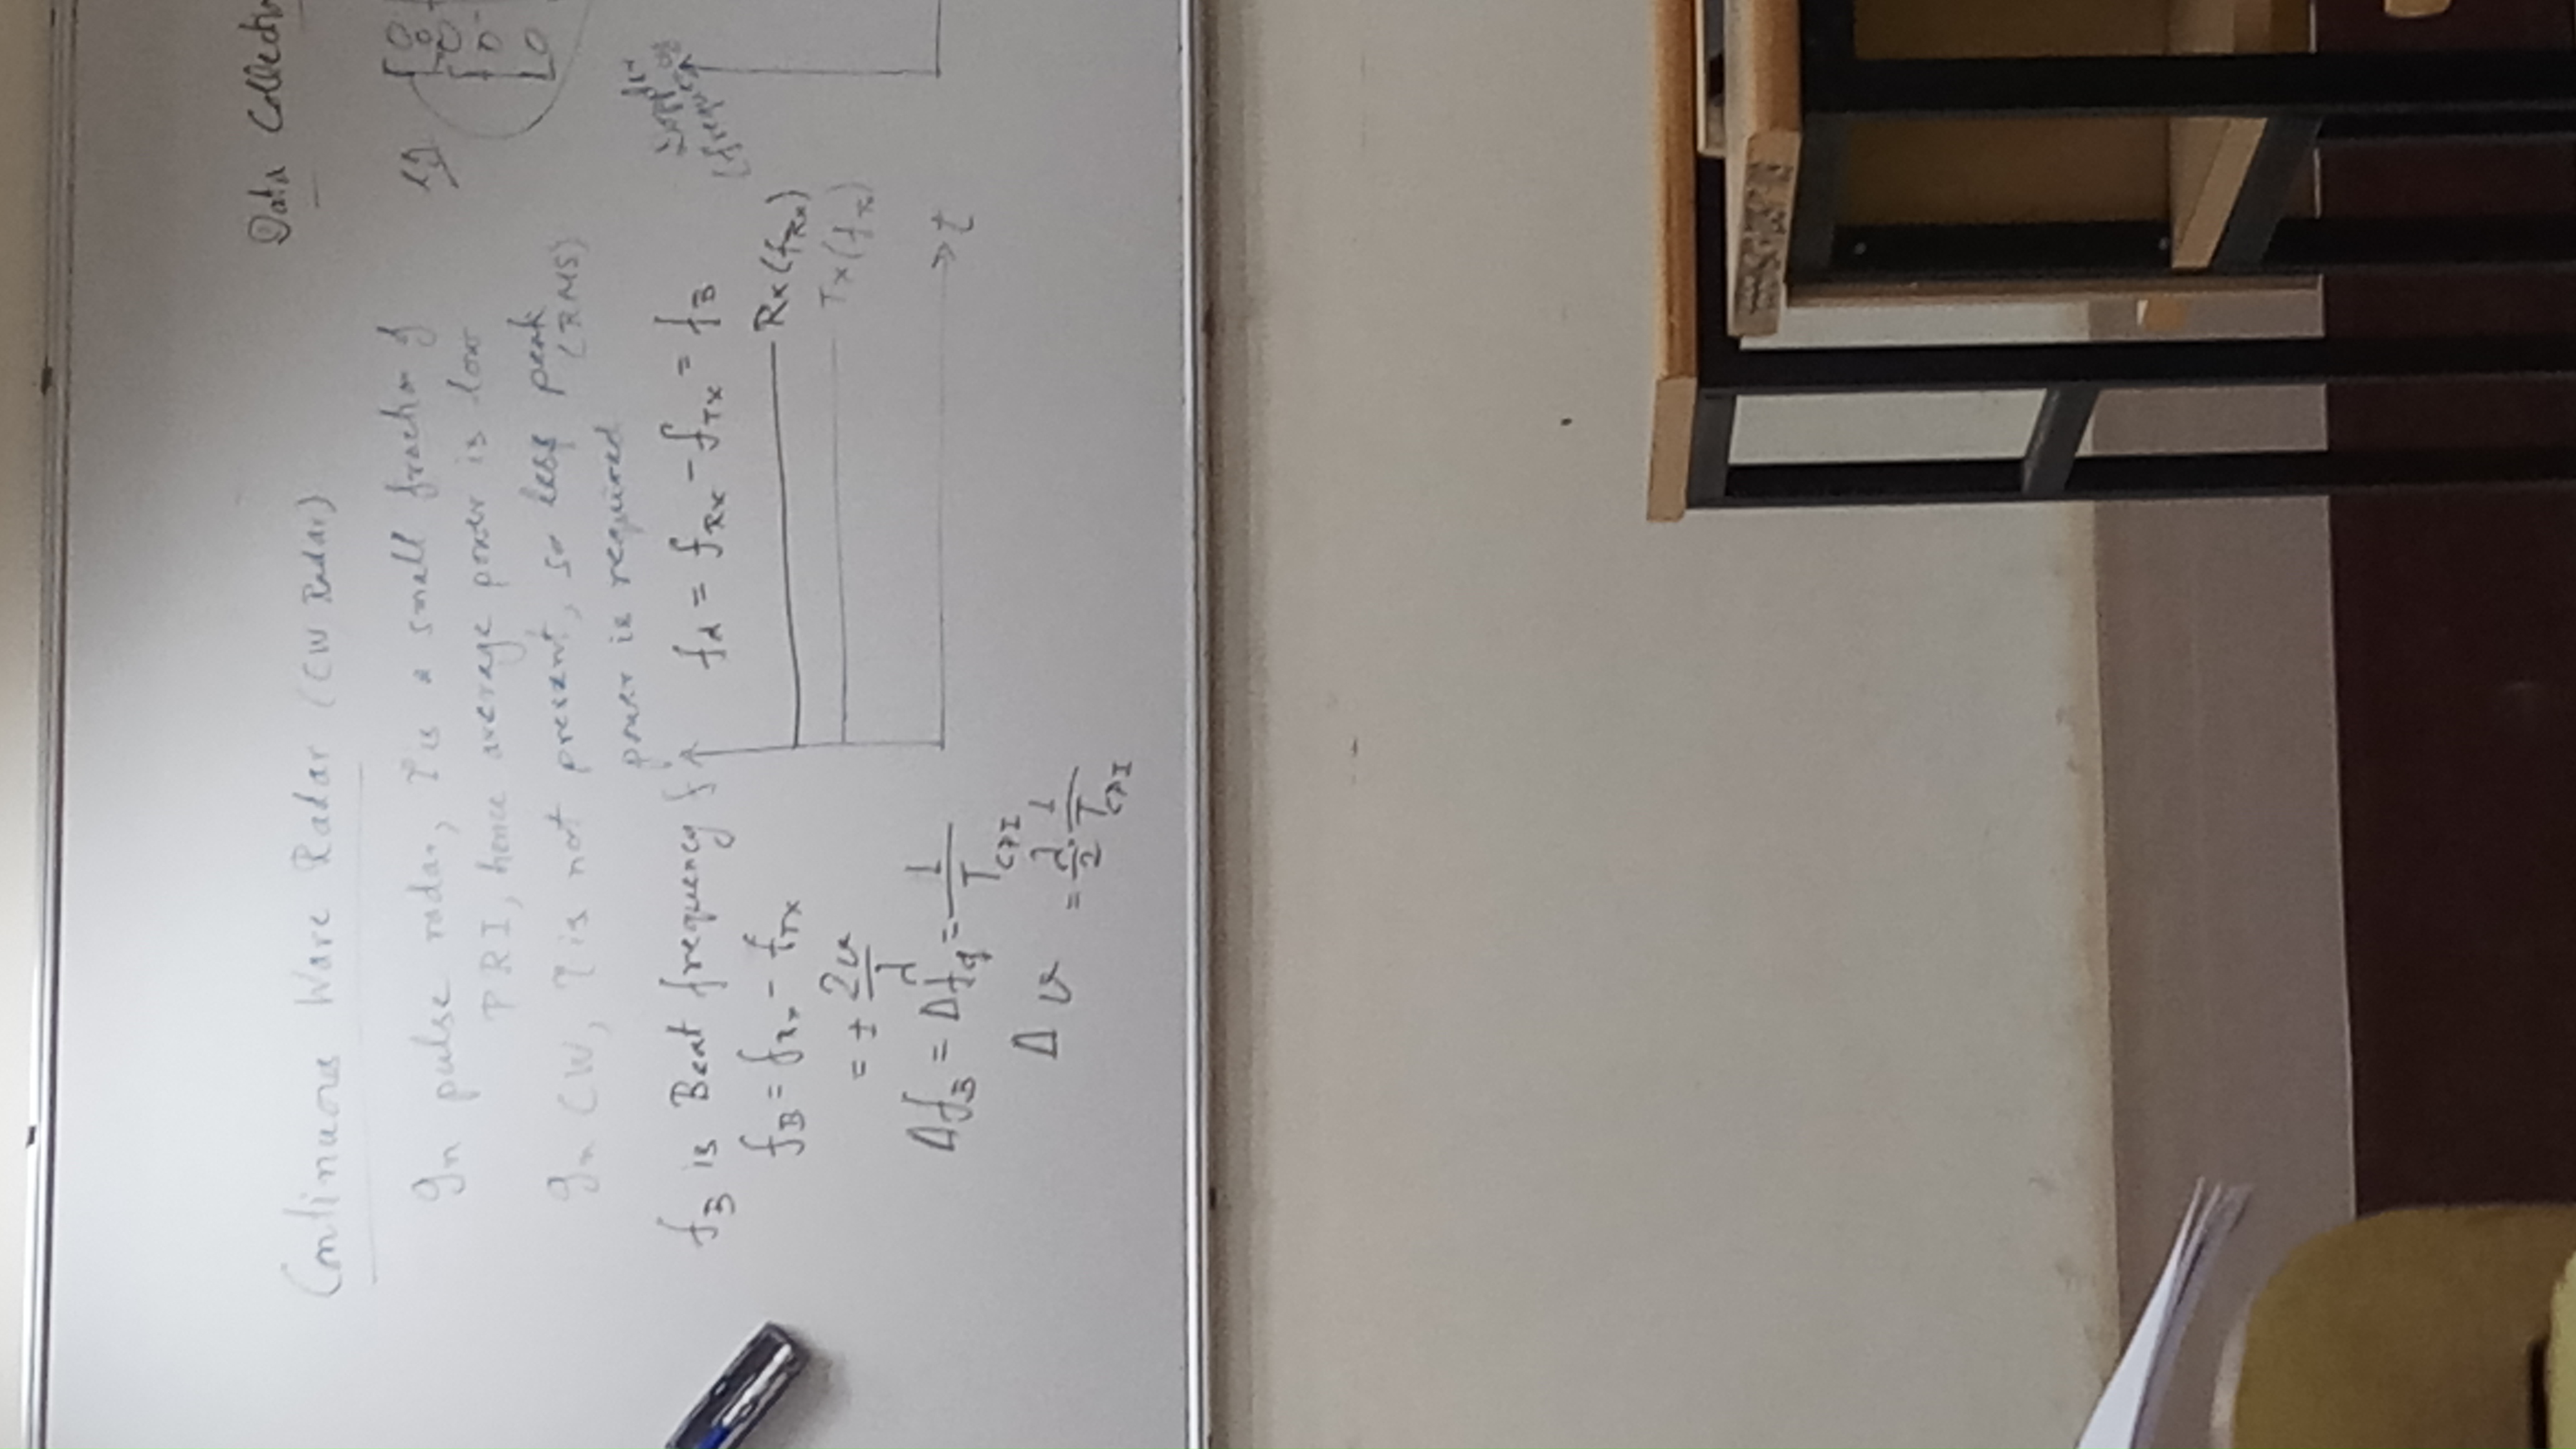 Continuous Wave Radar (CW Radar)
In pulse radar, τ is a small fraction of
PRI, hence average power is low
In CW, τ is not present, so less peak
(RMS)
power is required
f_B is Beat frequency
f_B = f_Rx - f_Tx
= ± 2v/λ
Δf_B = Δf_d = 1/T_CPI
Δv = λ/2 · 1/T_CPI
f
f_d = f_Rx - f_Tx = f_B
Rx (f_Rx)
Tx (f_Tx)
t
Data Collectio
eg
Doppler
(frequency